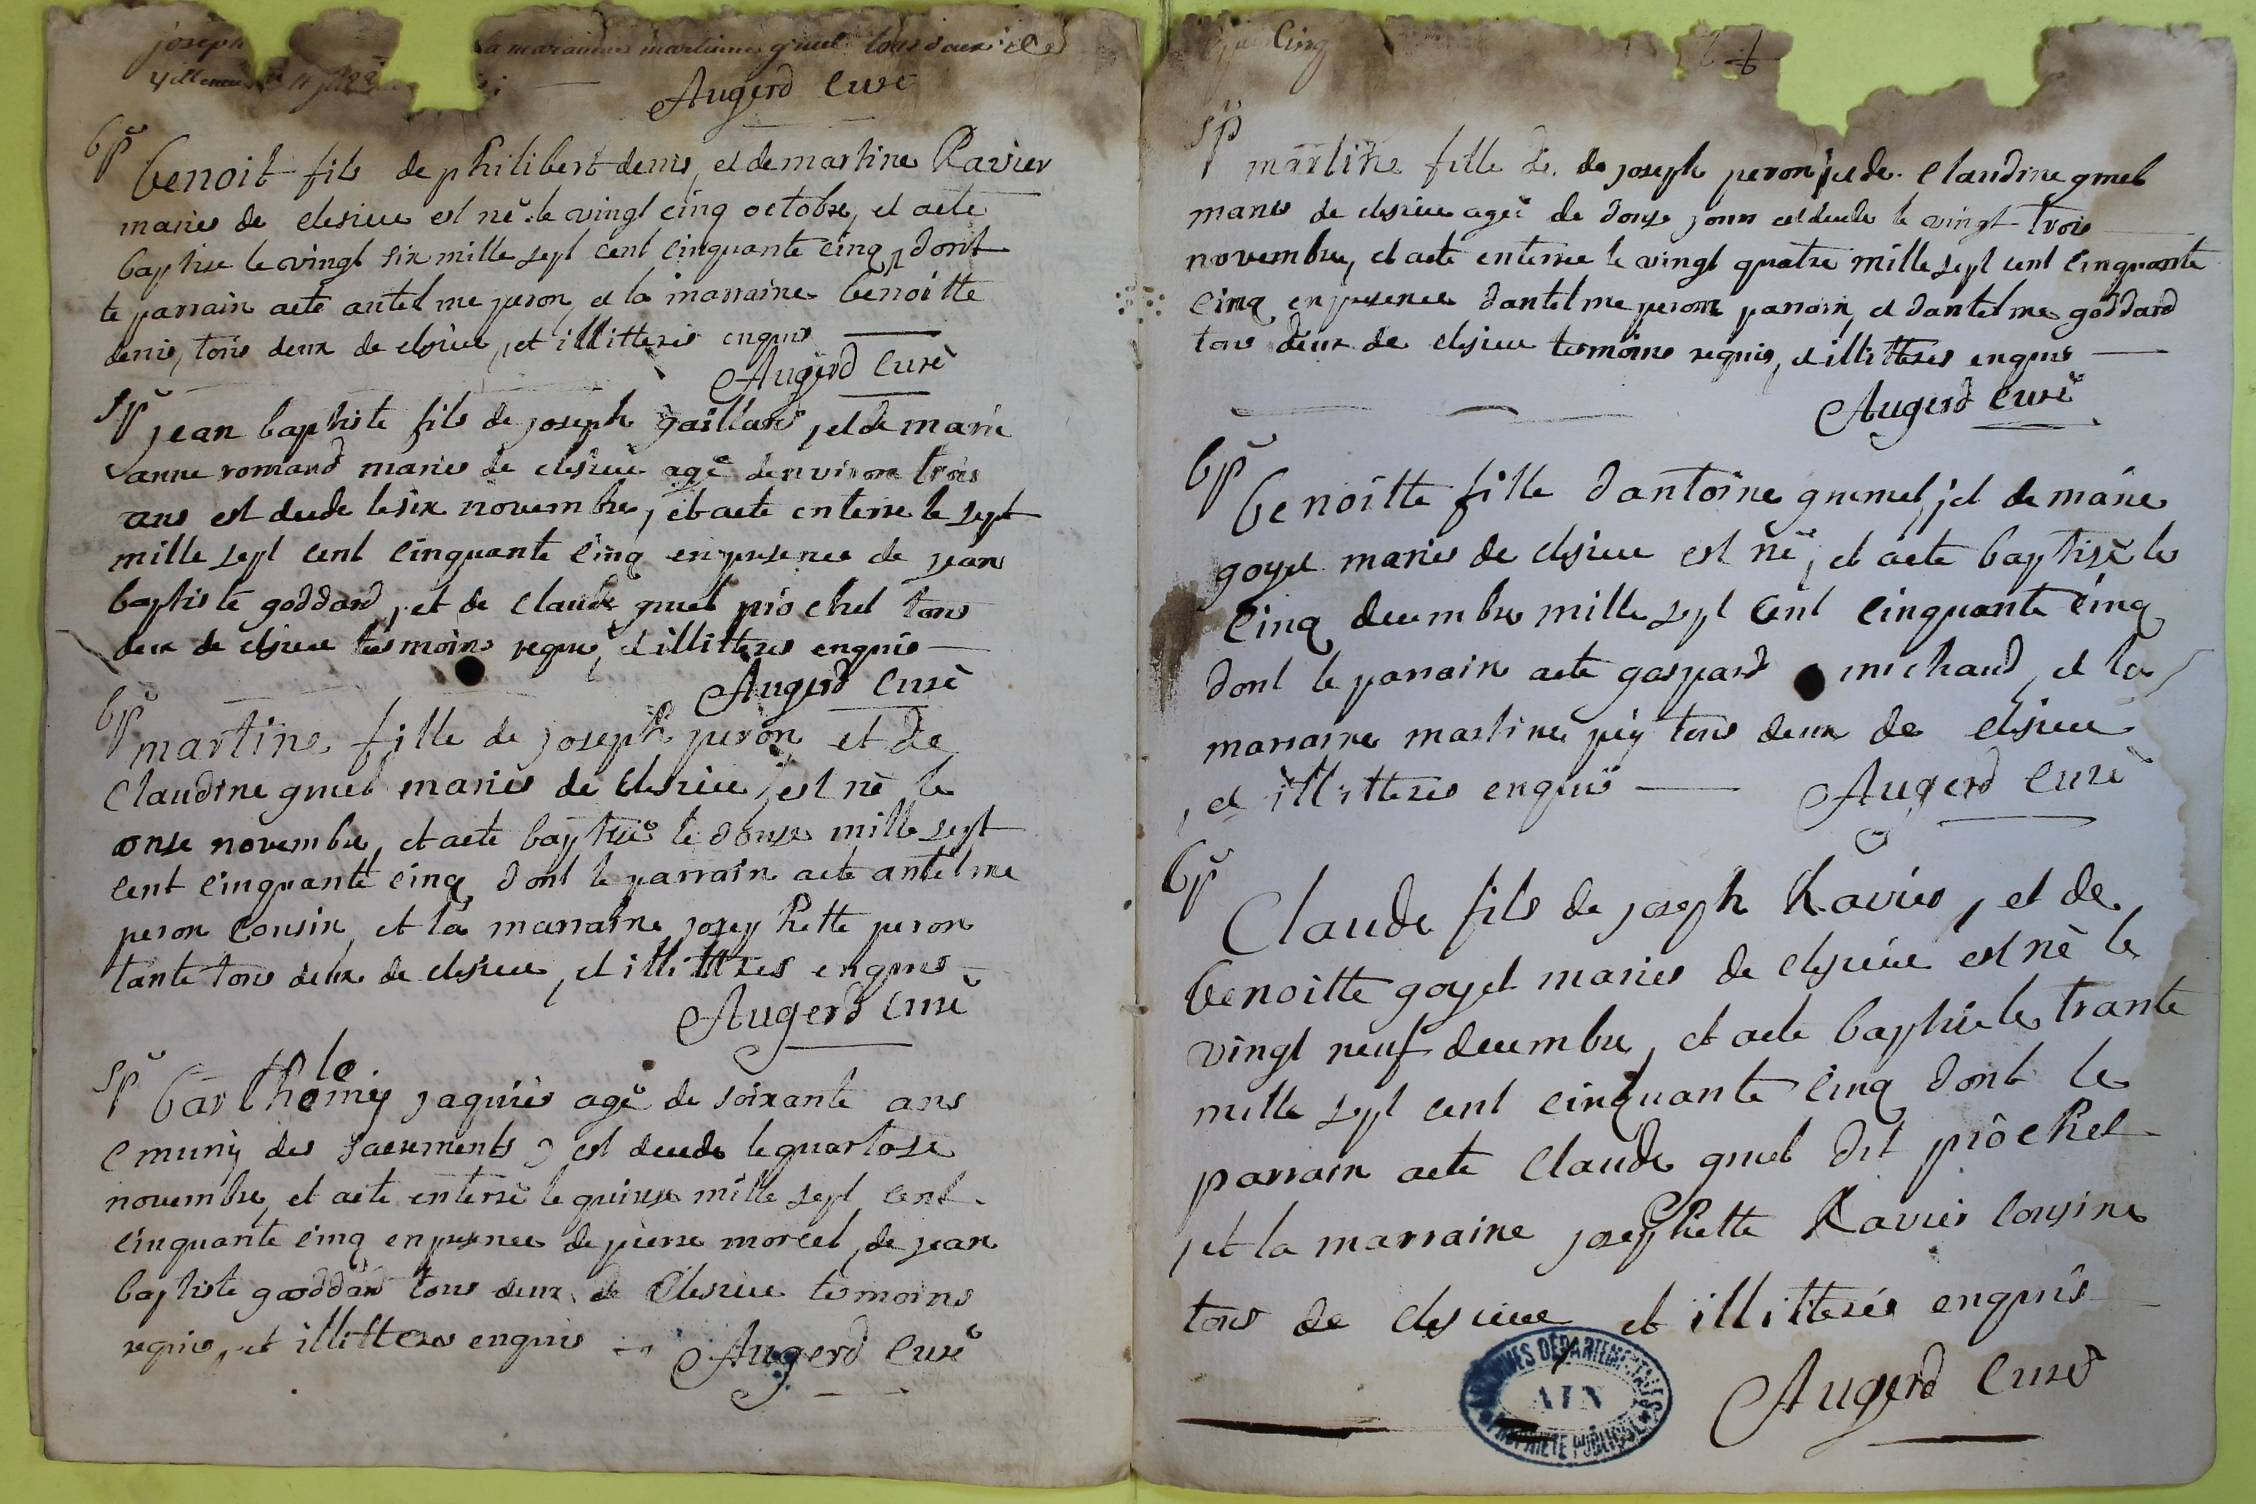 joseph la marainne martinne gruel tous deux
Augerd Curé
bp
benoit fils de philibert denis, et de martine Ravier
maries de clesieu est né le vingt cinq octobre, et aeté
baptise le vingt six mille sept cent cinquante cinq, dont
le parrain aeté antelme peron, et la marraine benoitte
denis, tous deux de clesieu, et illitteres enquis
Augerd Curé
sp
jean baptiste fils de joseph gaillard, et de marie
anne romand maries de clesieu agé denviron trois
ans est decede le six novembre, et aeté enterre le sept
mille sept cent cinquante cinq en presence de jean
baptiste goddard, et de claude gruel piochel tous
deux de clesieu tesmoins requis, et illitteres enquis
Augerd Curé
bp
martine fille de joseph peron et de
Claudine gruel maries de clesieu, est né le
onze novembre, et aeté baptisé le douze mille sept
cent cinquante cinq dont le parrain aeté antelme
peron cousin, et la marraine josephette peron
tante tous deux de clesieu, et illitteres enquis
Augerd Curé
sp
lo
barthemy jaquier agé de soixante ans
muny des sacrements, est decede le quartose
novembre, et aeté enterré le quinze mille sept cent
cinquante cinq en presence de pierre morcel, de jean
baptiste goddard tous deux de Clesieu temoins
requis, et illitteres enquis Augerd Curé
Cinq
sp
martine fille de de joseph peron, et de Claudine gruel
maries de clesieu ageé de douze jours est decede le vingt trois
novembre, et aeté enterrée le vingt quatre mille sept cent cinquante
cinq en presence dantelme peron parrain, et dantelme goddard
tous deux de clesieu tesmoins requis, et illitteres enquis
Augerd Curé
bp
benoitte fille dantoine grumel, et de marie
goyet maries de clesieu est né, et aeté baptisé le
cinq decembre mille sept cent cinquante cinq
dont le parrain aeté gaspard michaud, et la
marraine martine pey tous deux de clesieu
, et illitteres enquis Augerd Curé
bp
Claude fils de joseph Ravier, et de
benoitte goyet maries de clesieu est né le
vingt neuf decembre, et aeté baptisé le trante
mille sept cent cinquante cinq dont le
parrain aeté Claude gruel dit piôchel
, et la marraine josephette Ravier cousine
tous de clesieu et illitteres enquis
Augerd Curé
ARCHIVES DÉPARTEMENTALES
AIN
PROPRIÉTÉ PUBLIQUE